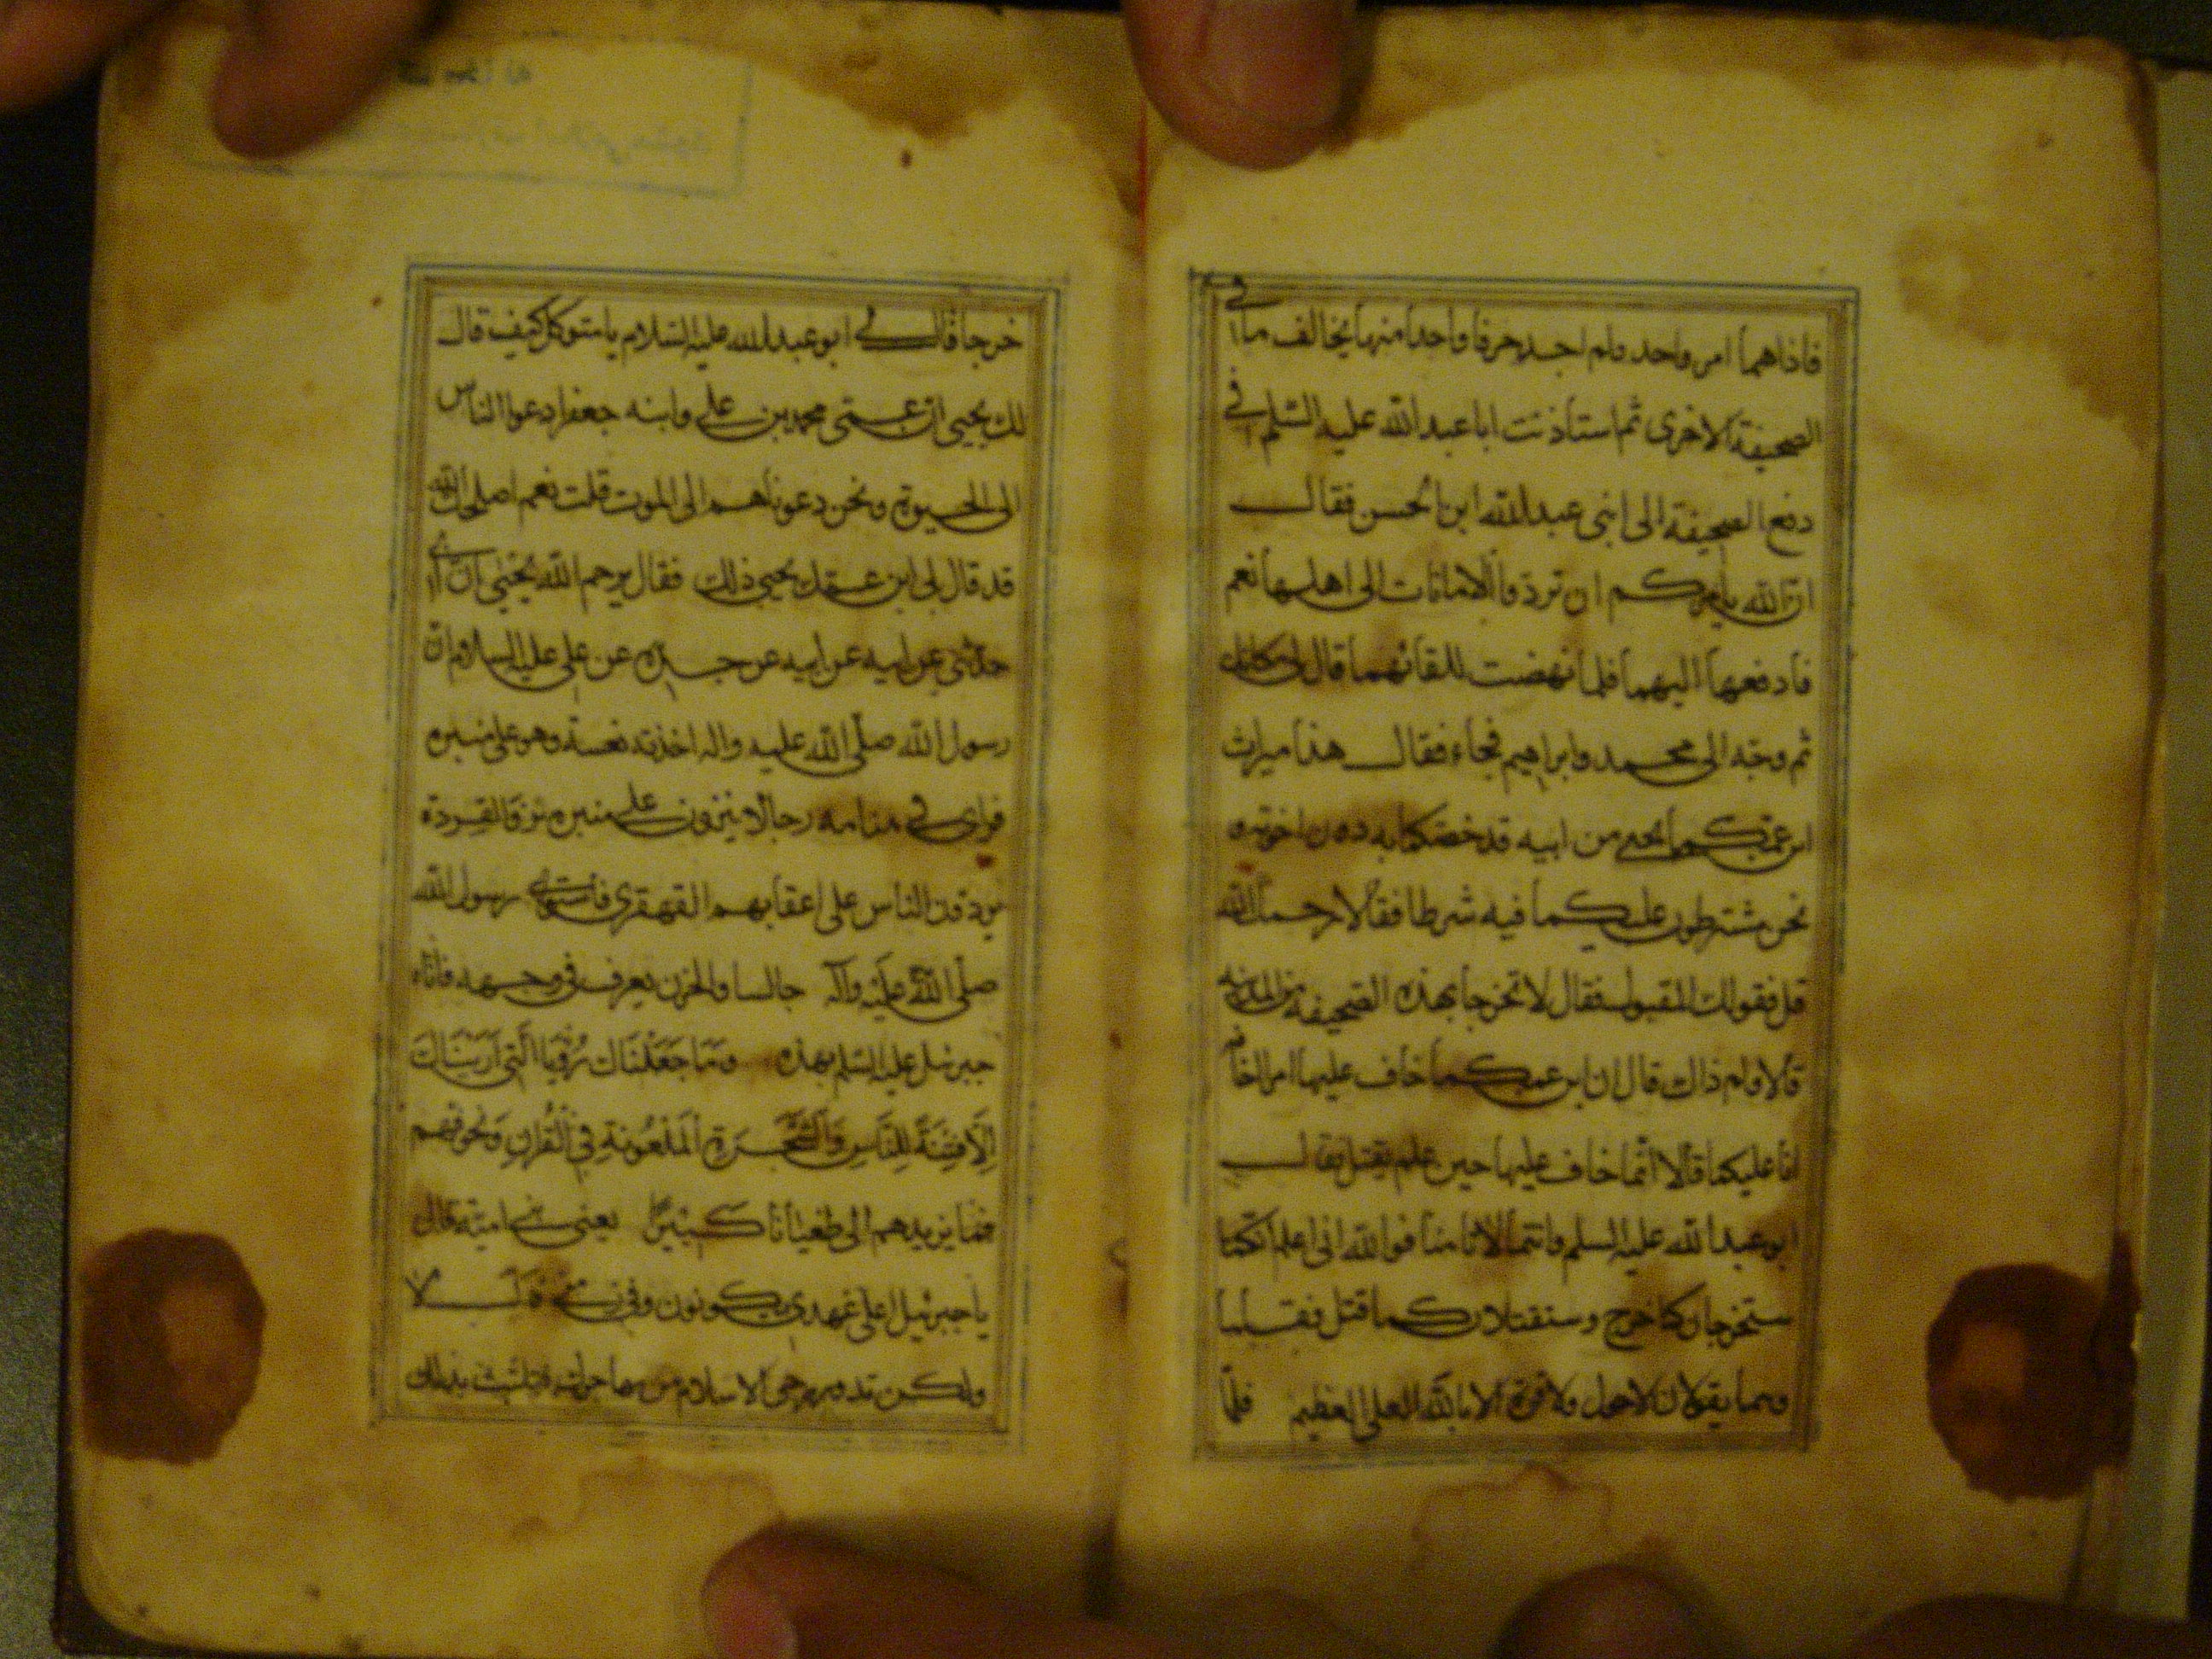 فاذاهما امر واحد ولم اجد حرفا واحدا منها يخالف ما في
الصحيفة الاخرى ثم استأذنت ابا عبد الله عليه السلم في
دفع الصحيفة الى ابنى عبد الله ابن الحسن فقال
ان الله يأمركم ان تردوا الامانات الى اهلها نعم
فادفعها اليهما فلما نهضت للقائهما قال لى مكانك
ثم وجه الى محمد وابراهيم فجاء فقال هذا ميراث
ابن عمكما يحيى من ابيه قد خصكما به دون اخوته و
نحن مشترطون عليكما فيه شرطا فقالا رحمك الله
قل فقولك المقبول فقال لا تخرجا بهذه الصحيفة من المدينة
قالا ولم ذاك قال ان ابن عمكما خاف عليها امرا اخافه
انا عليكما قالا انما خاف عليها حين علم يقتل فقال
ابو عبد الله عليه السلم وانتما لا تامنا فوالله انى اعلم انكما
ستخرجان كما خرج وستقتلان كما قتل فقاما
وهما يقولان لا حول ولا قوة الا بالله العلى العظيم فلما
خرجا قال لى ابو عبد الله عليه السلام يا متوكل كيف قال
لك يحيى ان عمى محمد بن على وابنه جعفرا دعوا الناس
الى الحيوة ونحن دعوناهم الى الموت قلت نعم اصلحك الله
قد قال لى ابن عمك يحيى ذلك فقال يرحم الله يحيى ان ابى
حدثنى عن ابيه عن ابيه عن جده عن على عليه السلام ان
رسول الله صلى الله عليه واله اخذته نعسة وهو على منبره
فراى في منامه رجالا ينزون على منبره نزو القردة
يردون الناس على اعقابهم القهقرى فاستوى رسول الله
صلى الله عليه وآله جالسا والحزن يعرف في وجهه فاتاه
جبرئيل عليه السلم بهذه وَمَا جَعَلْنَاكَ رُؤْيَا الَّتِي اَرَيْنَاكَ
اِلَّا فِتْنَةً لِلنَّاسِ وَالشَّجَرَةِ الْمَلْعُونَةِ فِي الْقُرْانِ وَنُخَوِّفُهُم
فما يزيدهم الى طغيانا كَبِيرًا يعنى بنى امية قال
يا جبرئيل اعلى عهدى يكونون وفى زمنى قال لا
ولكن تدور رحى الاسلام من مهاجرك فتلبث بذلك